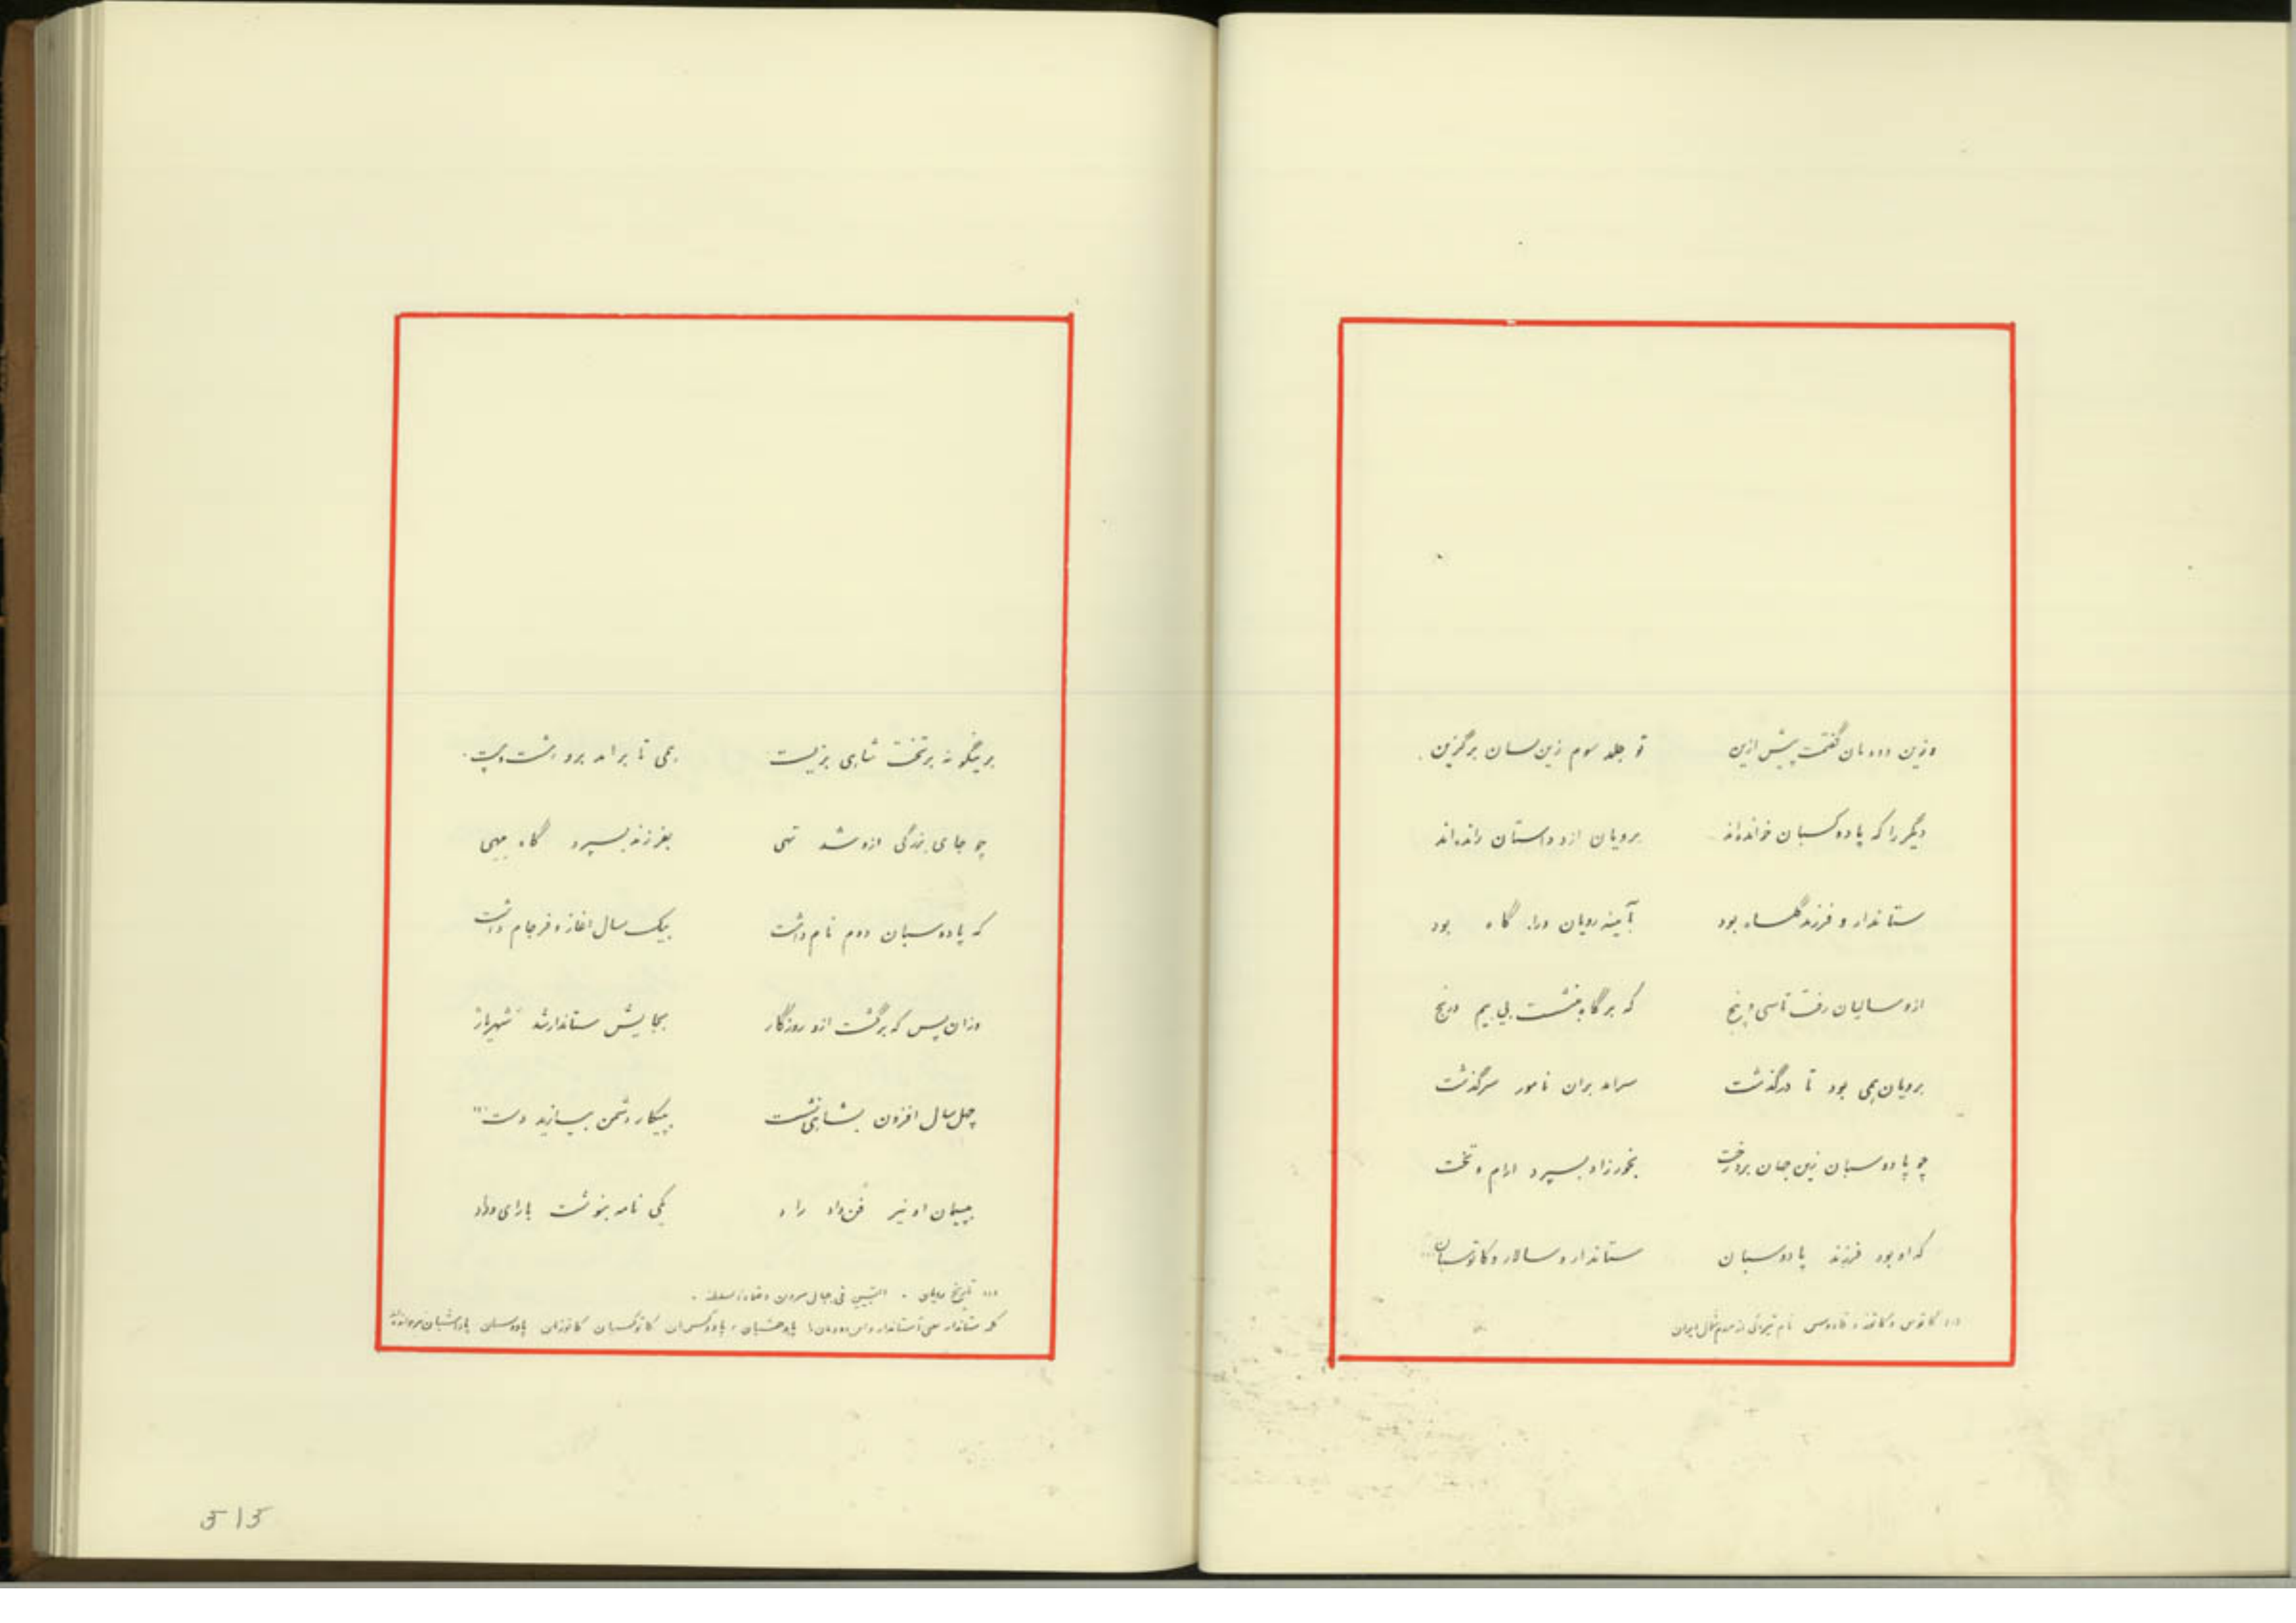 وزین دودمان گفتمت پیش ازین تو جلد سوم زین لسان برگزین
دیگر را که پادوکسبان خوانده‌اند برویان ازو داستان رانده‌اند
ستاندار و فرزند گلساه بود آیینه رویان ورا گاه بود
ازو سالیان رفت تا سی و پنج که بر گاه بنشست بی بیم و رنج
برویان همی بود تا درگذشت سرامد بران نامور سرگذشت
چو پادوسبان زین جهان برد رخت بخورزاد بسپرد ارام و تخت
که او بود فرزند پادوسبان ستاندار و سالار و کاتوسبان
کاتوس و کاتوز و قادوس نام تیره‌ای از مردم شمال ایران
برینگونه بر تخت شاهی بزیست همی تا برامد برو هشت و بیست
چو جای بزرگی ازو شد تهی بفرزند بسپرد گاه مهی
که پادوسبان دوم نام داشت بیک سال اغاز و فرجام داشت
وزان پس که برگشت ازو روزگار بجایش ستاندار شد شهریار
چل سال افزون بشاهی نشست بپیکار دشمن بیازید دست
بپیمان او نیز فن داد راد یکی نامه بنوشت با رای و داد
تاریخ رویان . التبیین فی
کلمه ستاندار پادوسبان
515